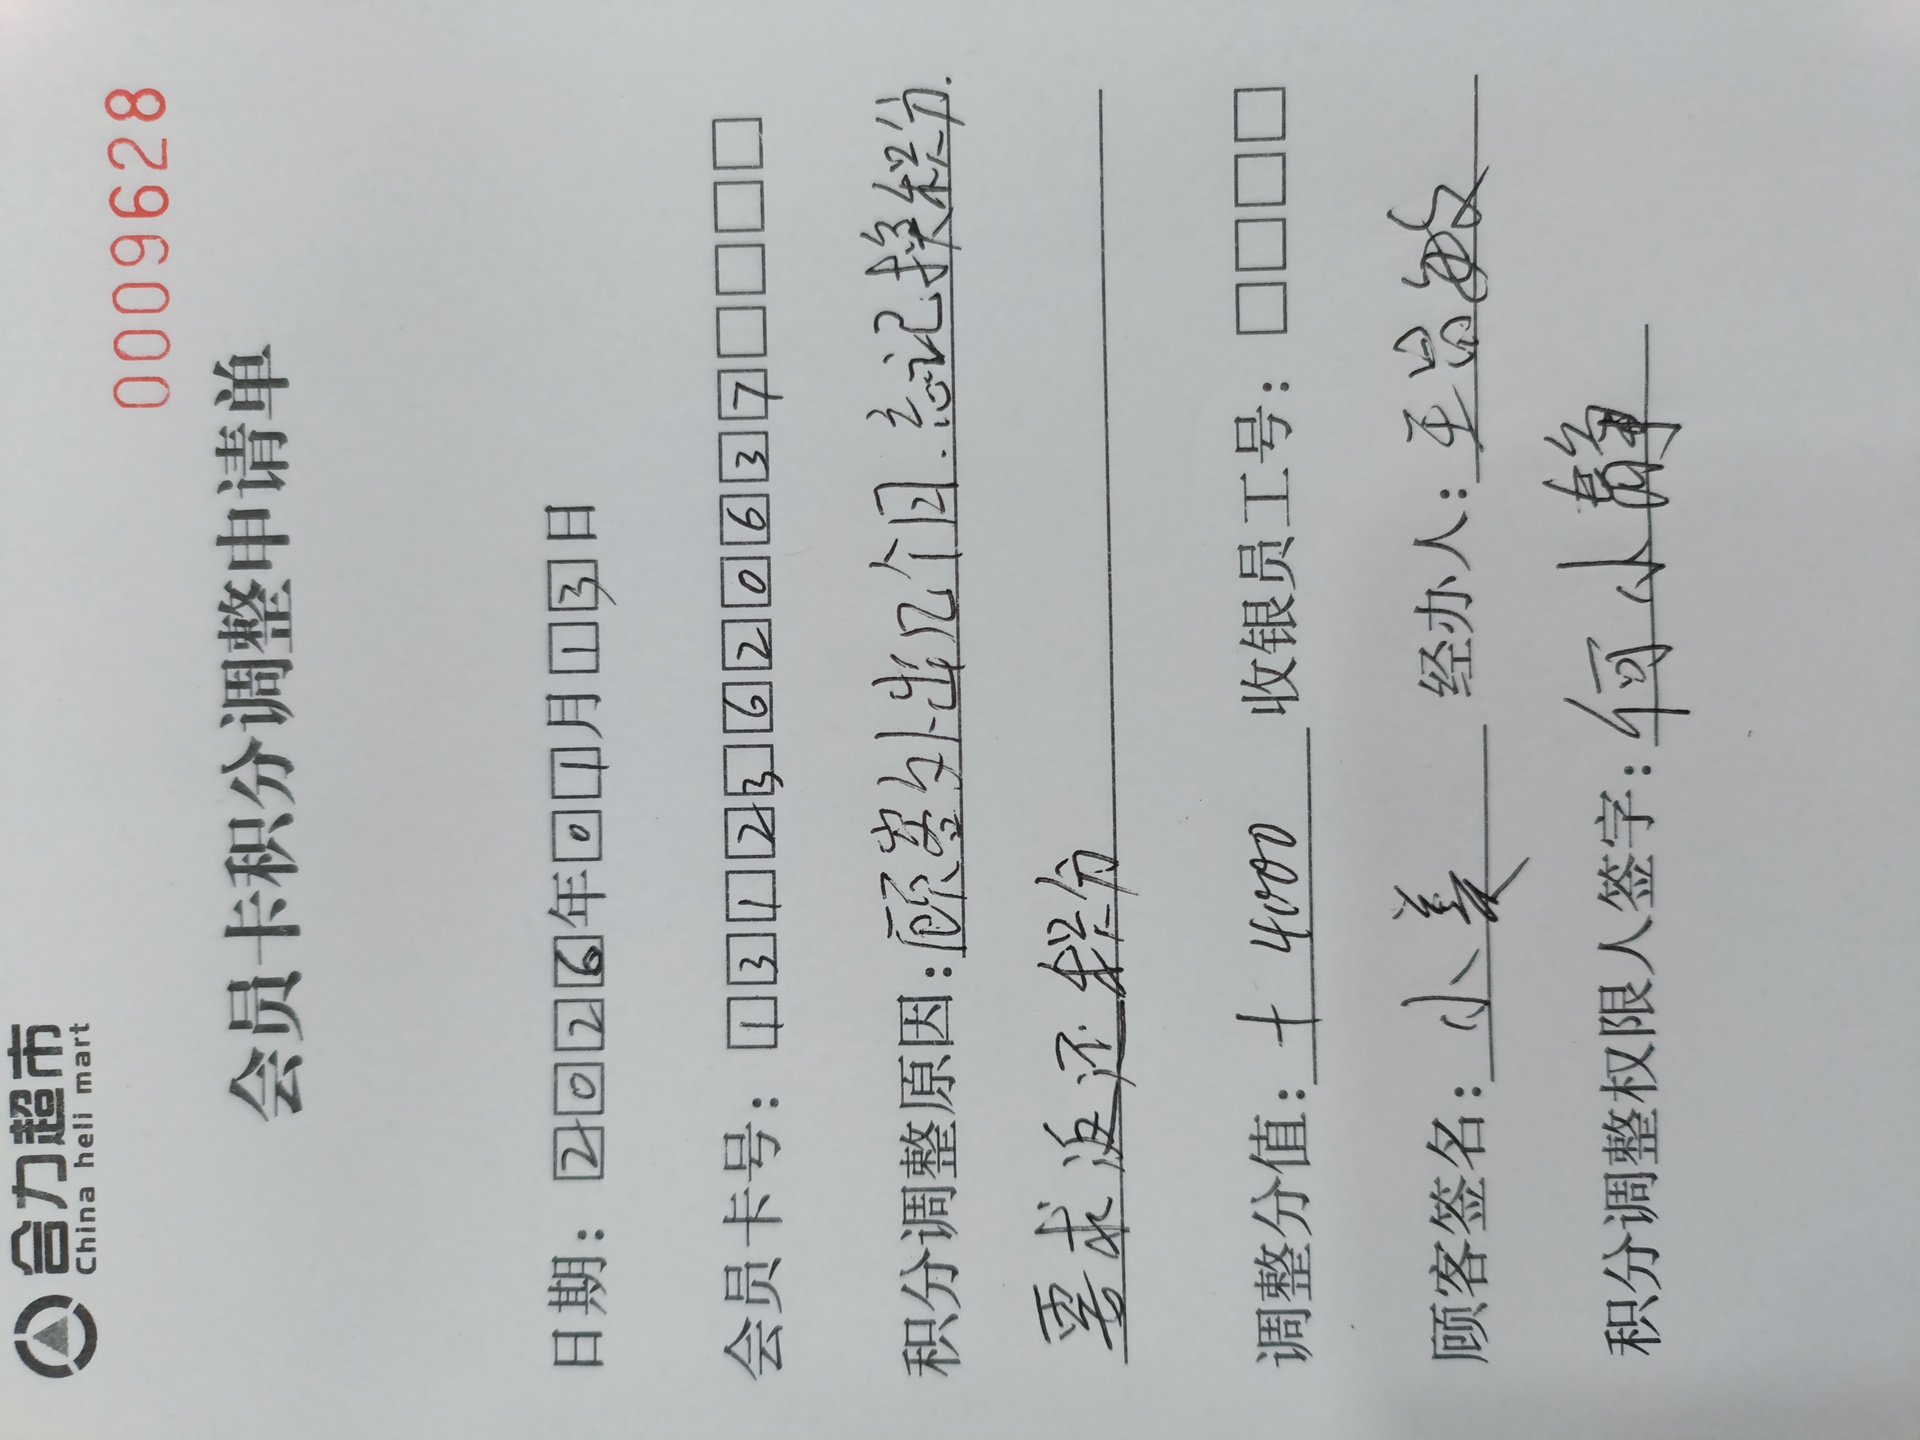 合力超市
China heli mart
0009628
会员卡积分调整申请单
日期：2026年01月13日
会员卡号：13123620637
积分调整原因：顾客外出几个月.忘记换积分.
要求返还积分
调整分值：+4000 收银员工号：
顾客签名：小美 经办人：
积分调整权限人签字：何小静